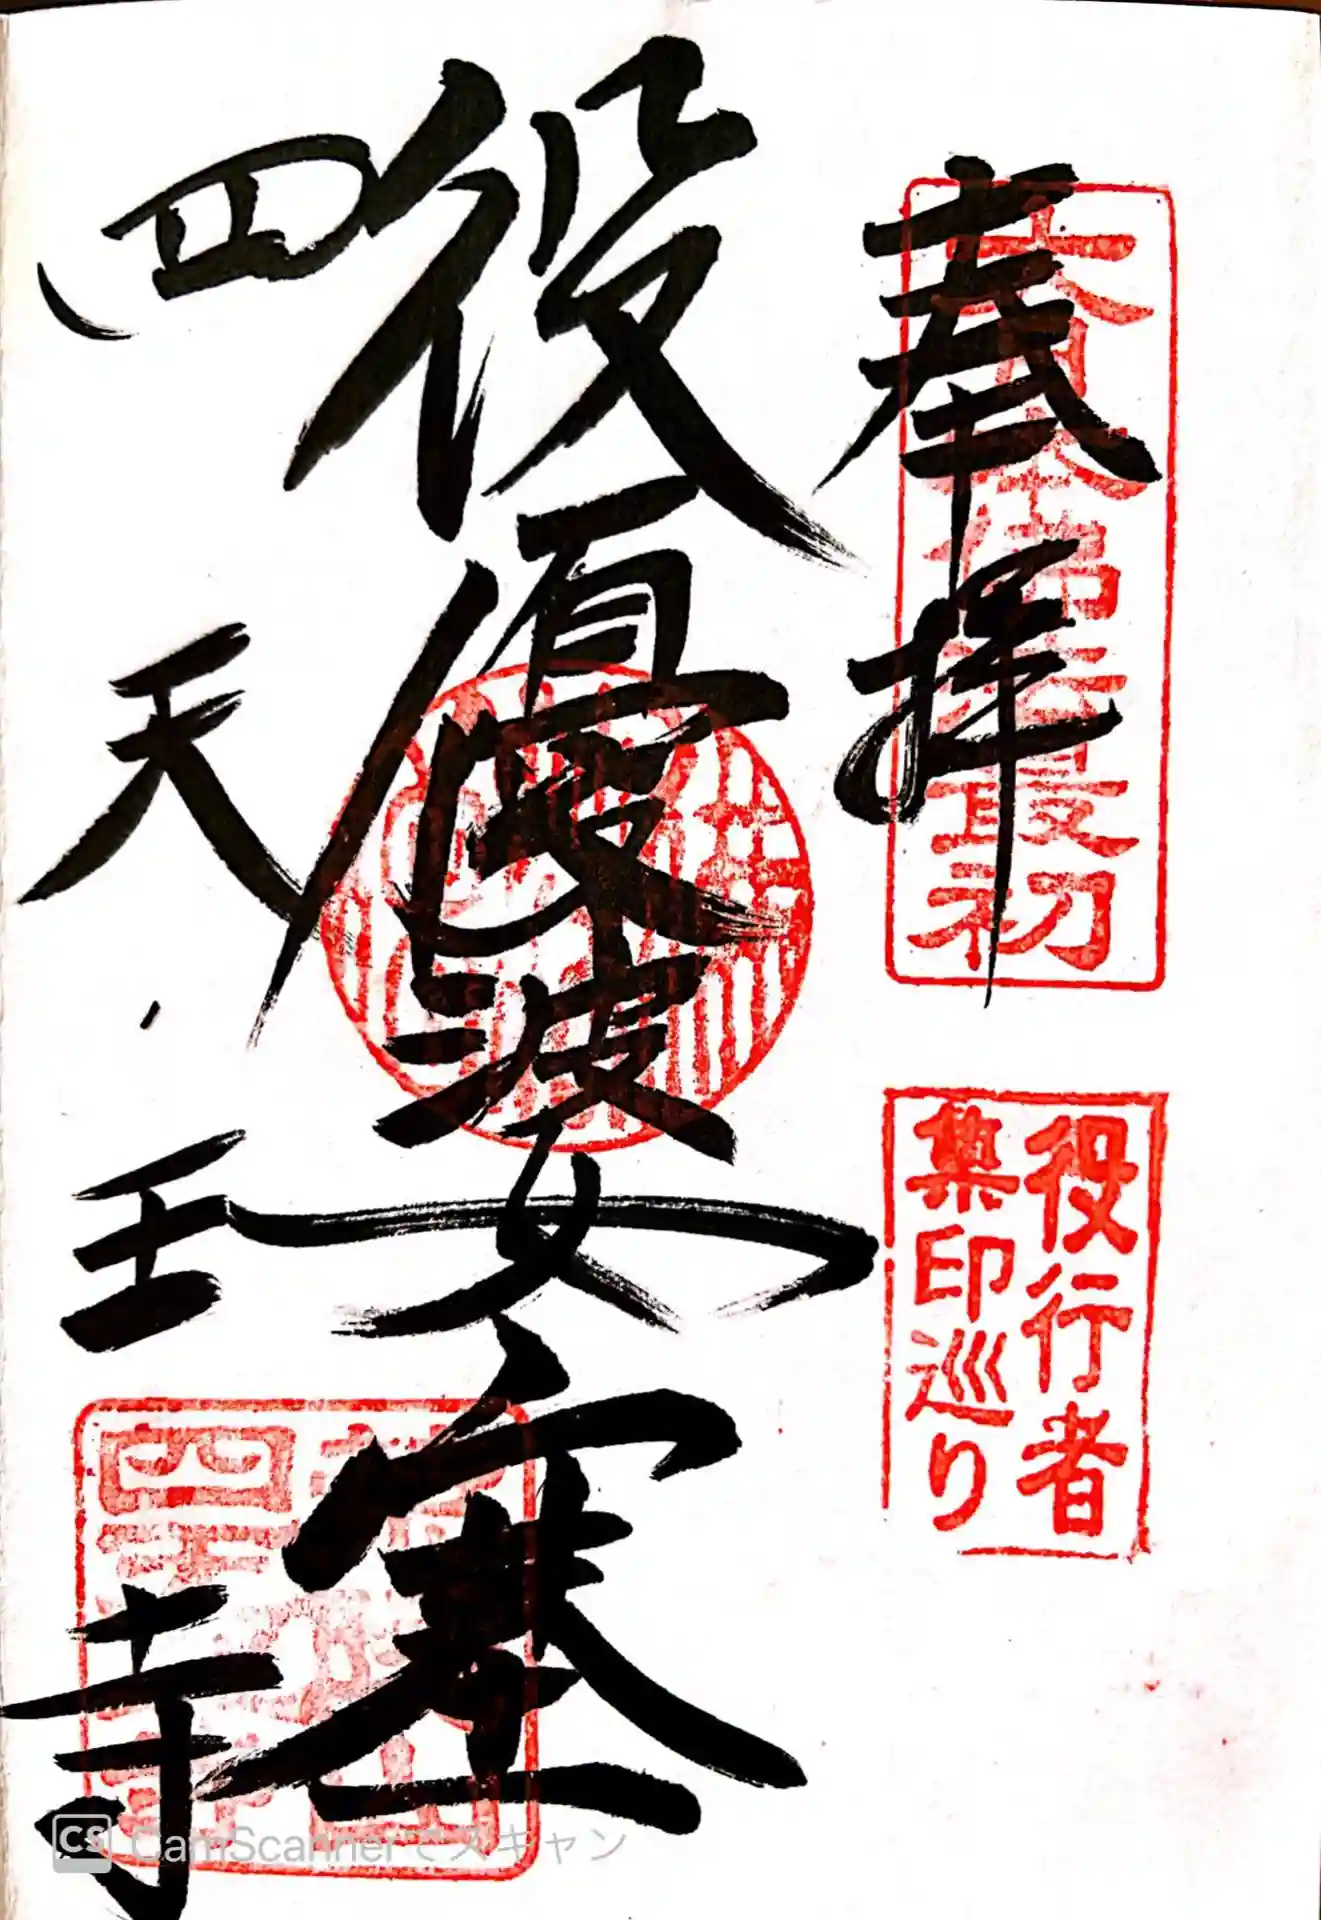 奉拝
大日本佛法最初
役行者
集印巡り
役優婆塞
四天王寺
CS CamScannerでスキャン